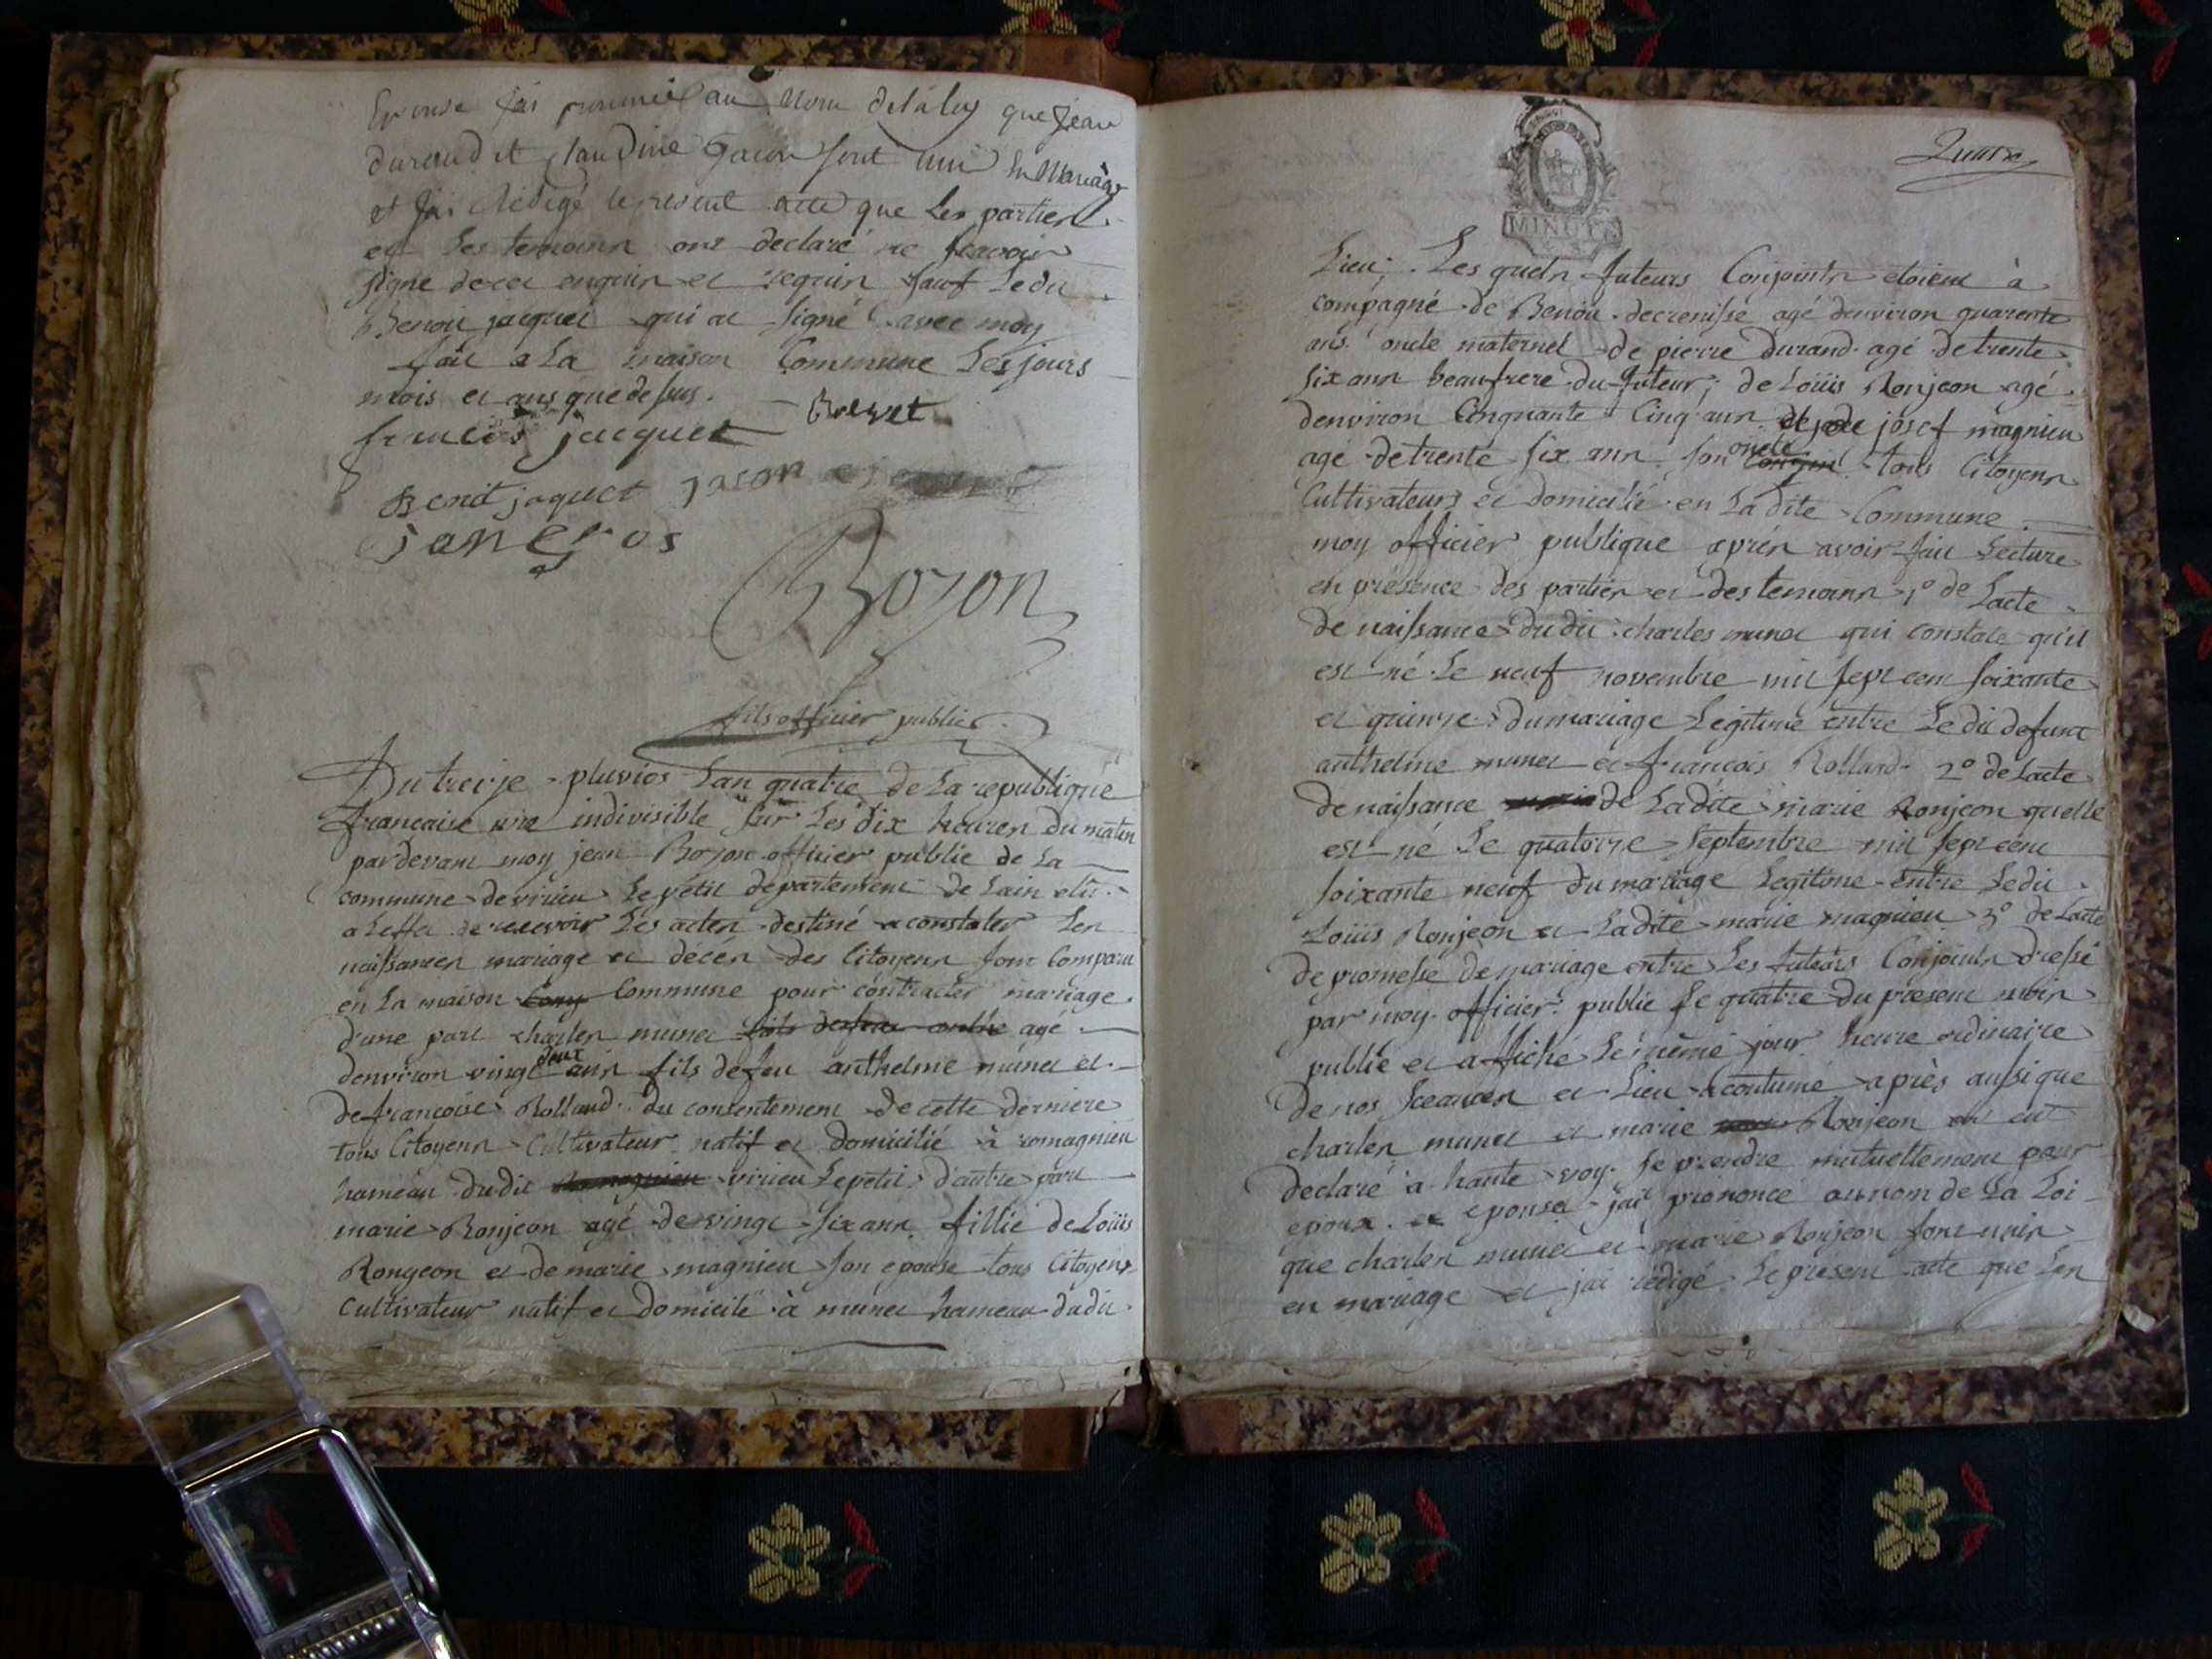 Epouse jai prononcé au nom de la loy que jean
durand et claudine gacon sont uni en Mariage
et jai Redigé le present acte que Les parties
et Les temoins ont declaré ne scavoir
signé de ce enquis et requis sauf Le dit
Benoit jacquet qui at signé avec moy
fait a La maison Commune Les jours
mois et ans que dessus.
francois jacquet Brevet
Benit jaquet
jan gros
Bozon
fils officier public
Du treize pluvios Lan quatre de La republique
francaise une indivisible sur Les dix heures du matin
pardevant moy jean Bozon officier public de La
commune de virieu Le petit departement de Lain elu
a Leffet de recevoir Les actes destiné a constater Les
naissances mariage et décés des Citoyens sont Comparu
en La maison Comm Commune pour contracter mariage
d'une part charles munet agé
denviron vingt deux ans fils de feu anthelme munet et
de francoise Rolland du consentement de cette derniere
tous Citoyens Cultivateur natif et domicilié à romagnieu
hameau du dit Romagnieu virieu Le petit d'autre part
marie Ronjeon agé de vingt six ans fillie de Loüis
Rongeon et de marie magnieu son epouse tous Citoyens
Cultivateur natif et domicilé à munet hameau du dit
MINUTE
Lieu; Les quels futeurs Conjoints etoient à
compagné de Benoit decrenisse agé denviron quarente
ans oncle maternel de pierre durand agé de trente
six ans beaufrere du futeur; de Loüis Ronjeon agé
denviron Cinquante Cinq ans josef magnieu
agé de trente six ans son oncle tous Citoyens
Cultivateurs et domicilié en La dite Commune
moy officier publique aprés avoir fait Lecture
en présence des parties et des temoins 1º de Lacte
de naissance du dit charles munet qui constate qu'il
est né Le neuf novembre mil sept cent soixante
et quinze du mariage Legitime entre Le dit defunt
anthelme munet et francois Rolland 2º de Lacte
de naissance marie de La dite marie Ronjeon quelle
est né Le quatorze septembre mil sept cent
soixante neuf du mariage Legitime entre Le dit
Loüis Ronjeon et La dite marie magnieu 3º de Lacte
de promesse de mariage entre Les futeurs Conjoints dressé
par moy officier public Le quatre du present mois
publié et affiché Le même jour heure ordinaire
de nos sceances et Lieu acoutumé après aussi que
charles munet et marie Ronjeon ont eut
declaré à haute voy se prendre mutuellement pour
epoux et epouse jai prononcé au nom de La Loi
que charles munet et marie Ronjeon sont unis
en mariage et jai redigé Le présent acte que Les